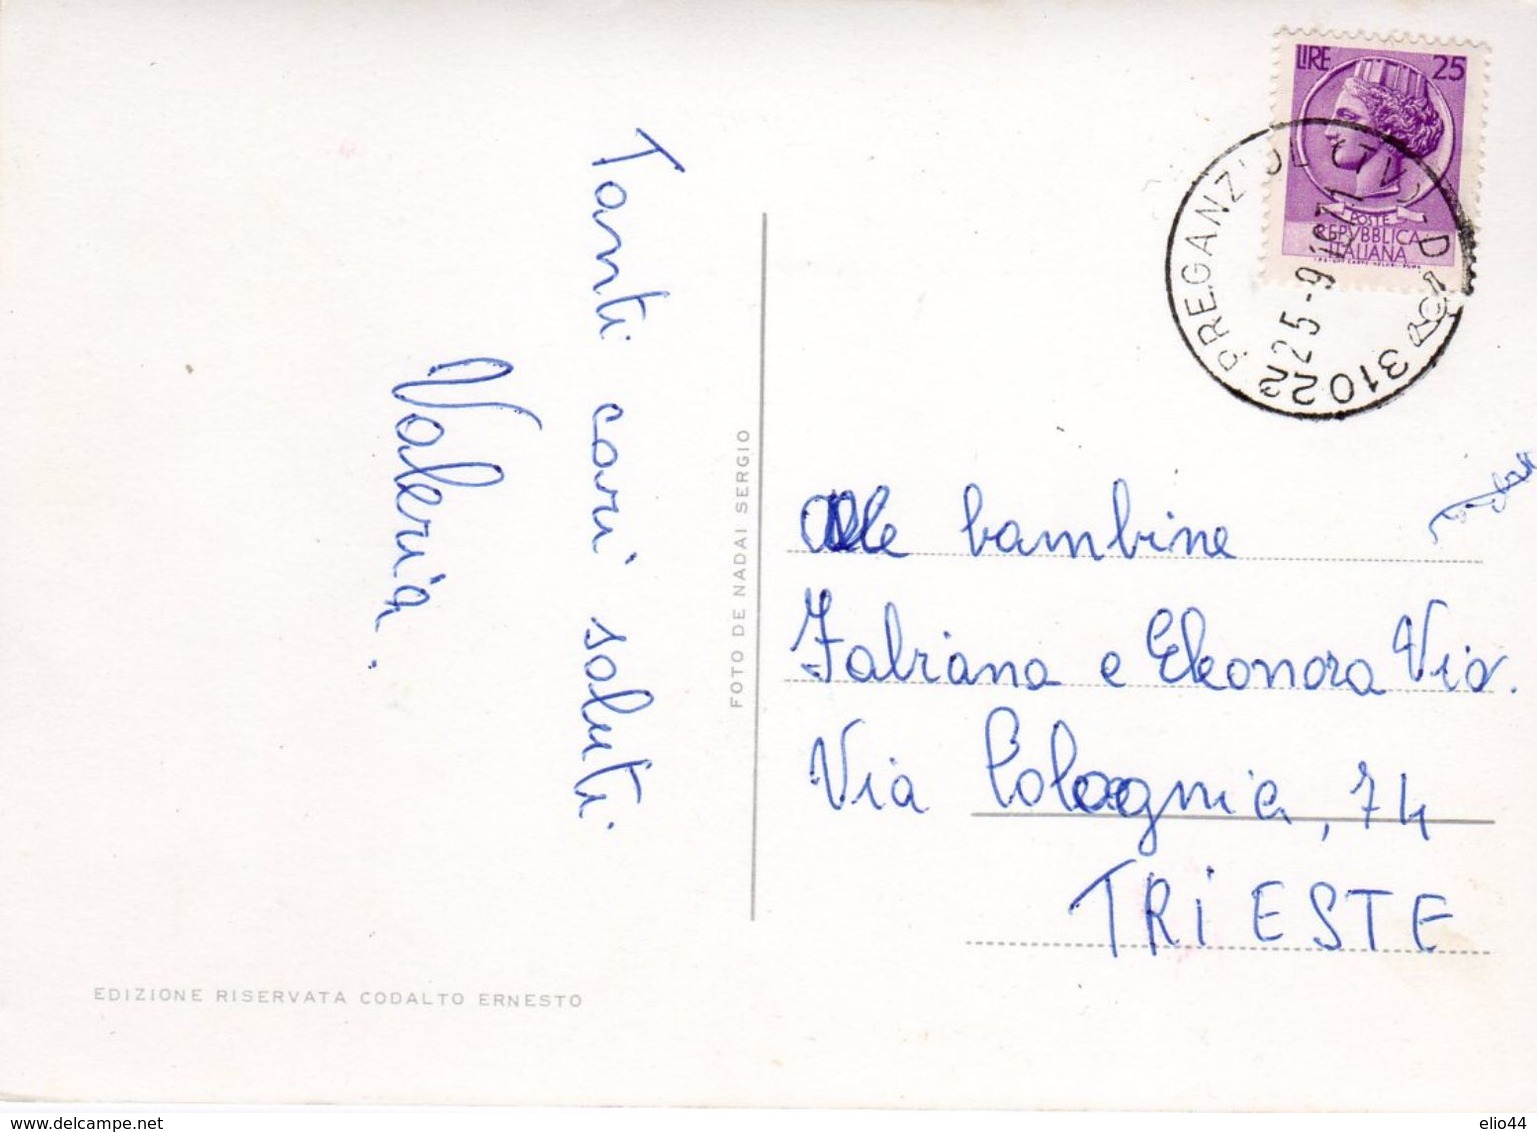 Tanti cari saluti
Valeria.
FOTO DE NADAI SERGIO
EDIZIONE RISERVATA CODALTO ERNESTO
LIRE 25
POSTE
REPVBBLICA
ITALIANA
31022 PREGANZIOL (TV)
25-9
Alle bambine
Fabiana e Eleonora
Via Cologna, 74
TRIESTE
delcampe.net
elio44